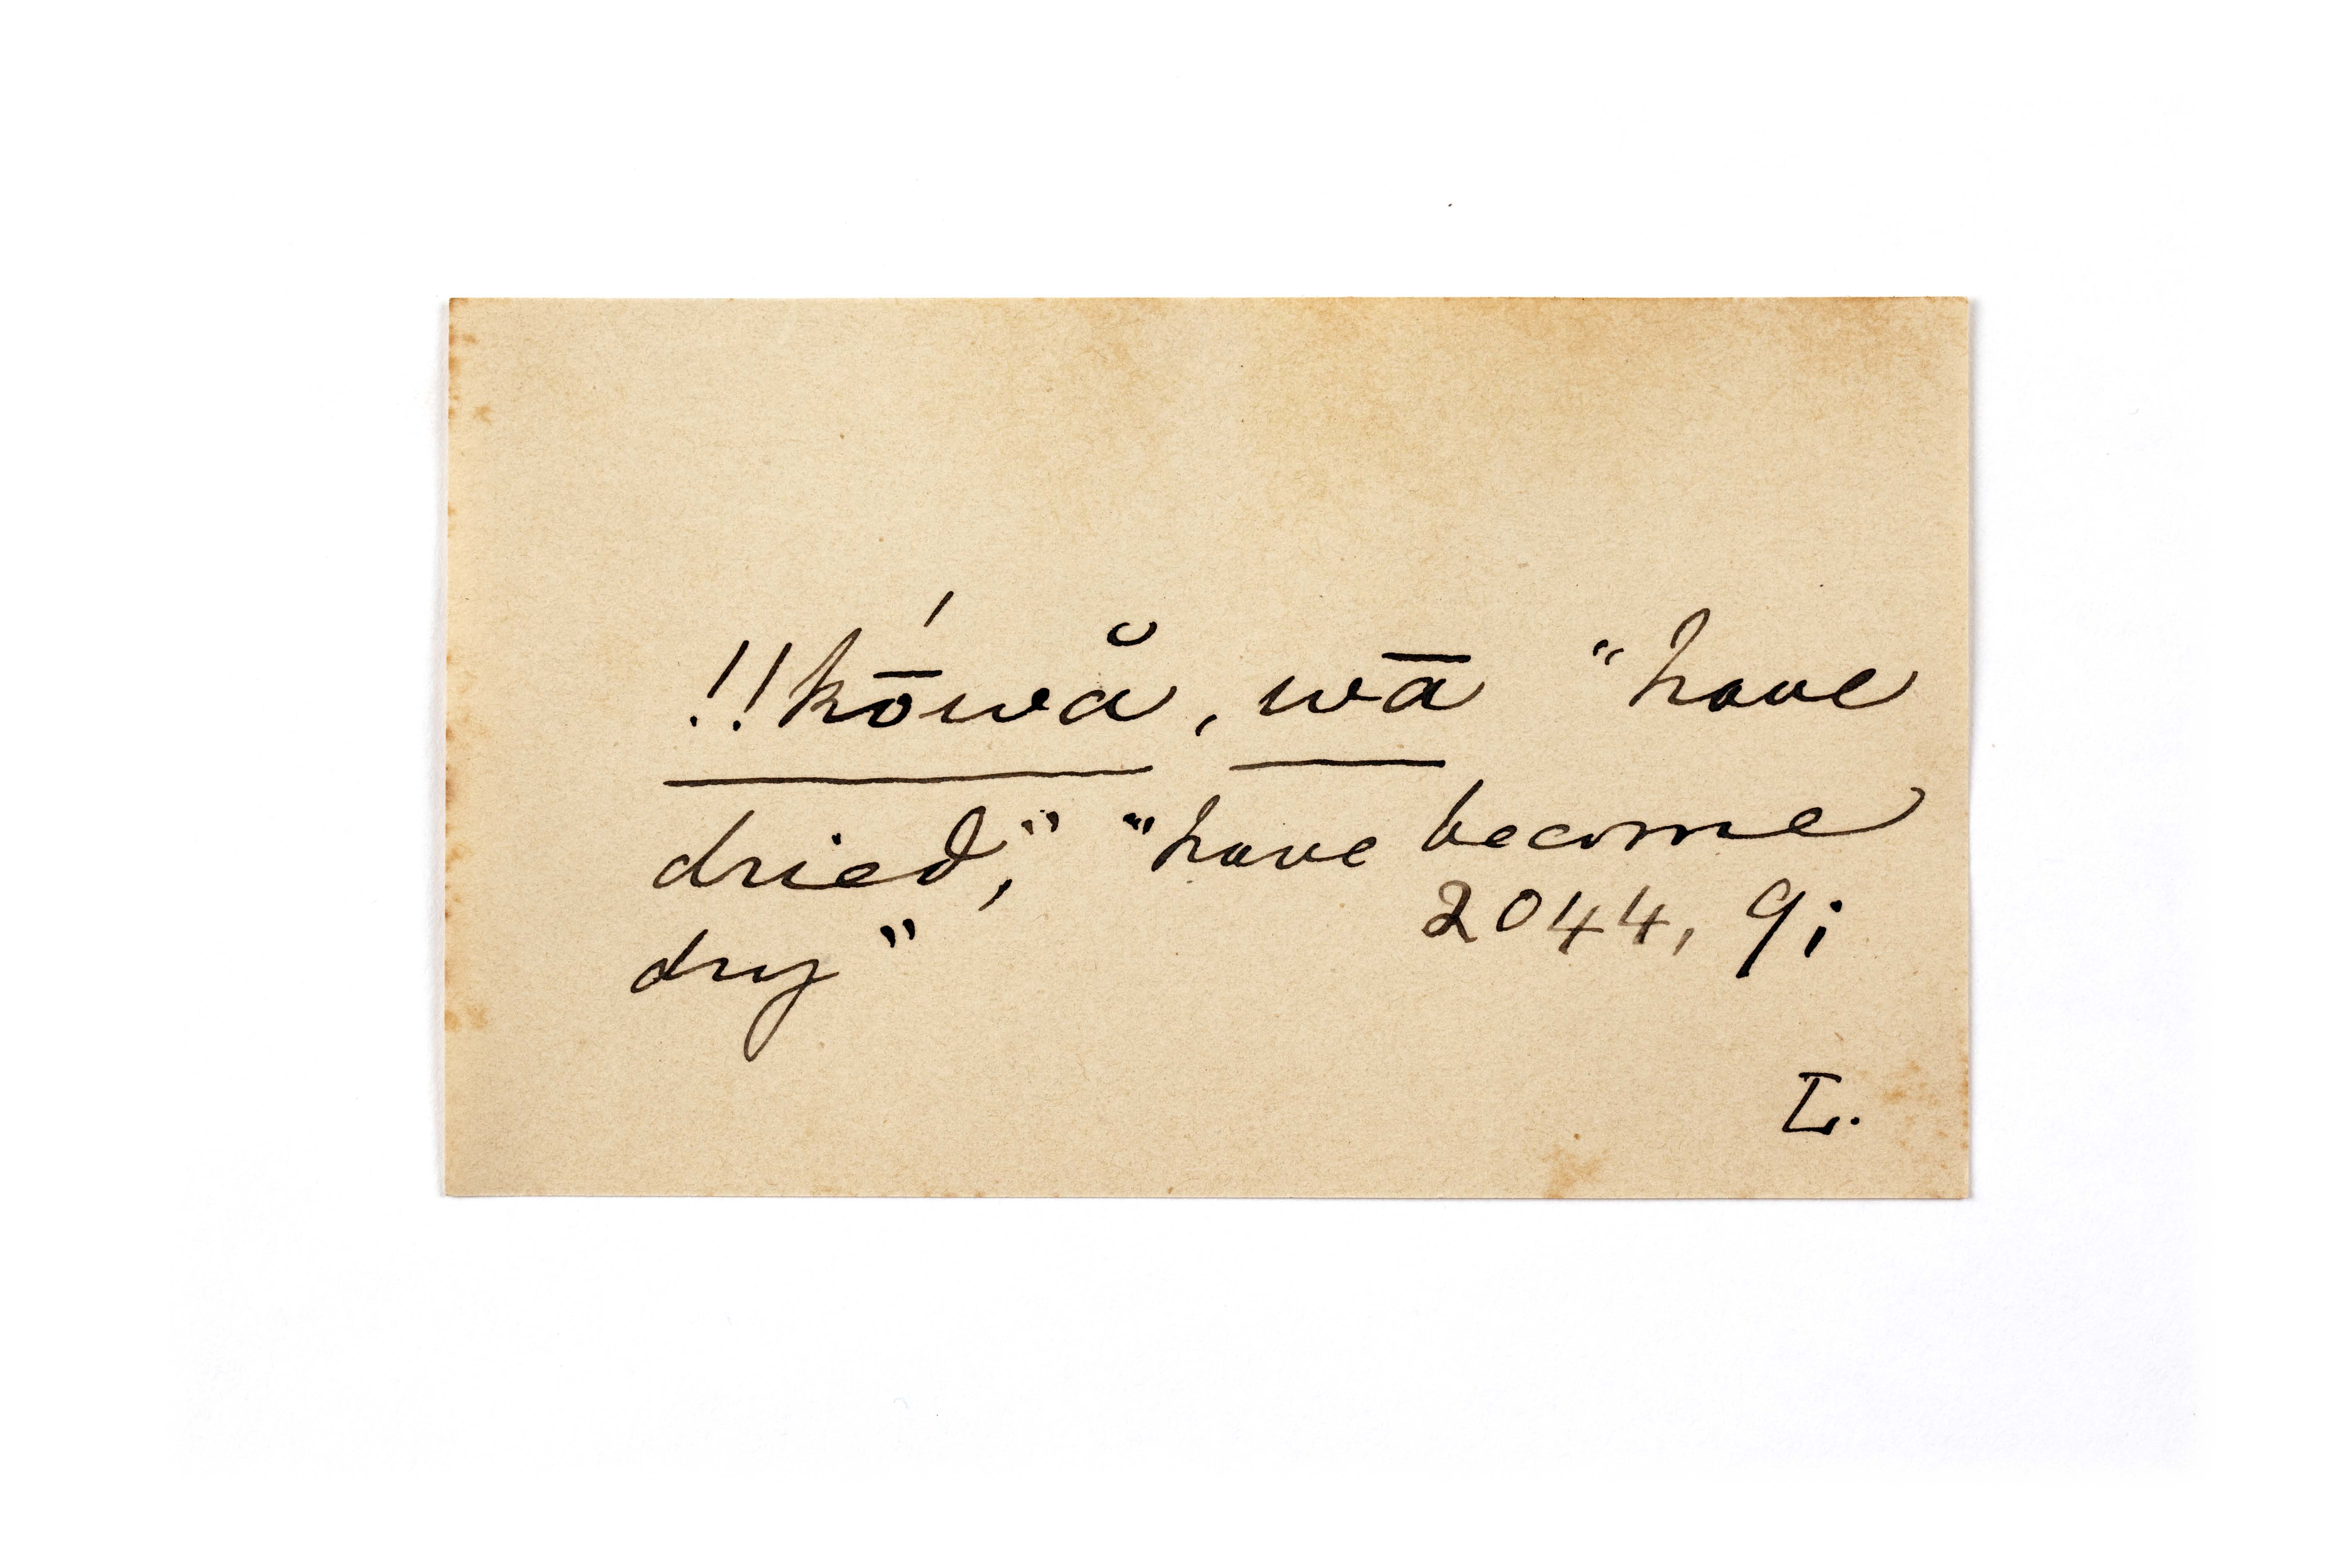 !!kṓwă, wā "have
dried," "have become
dry" 2044, 9;
L.